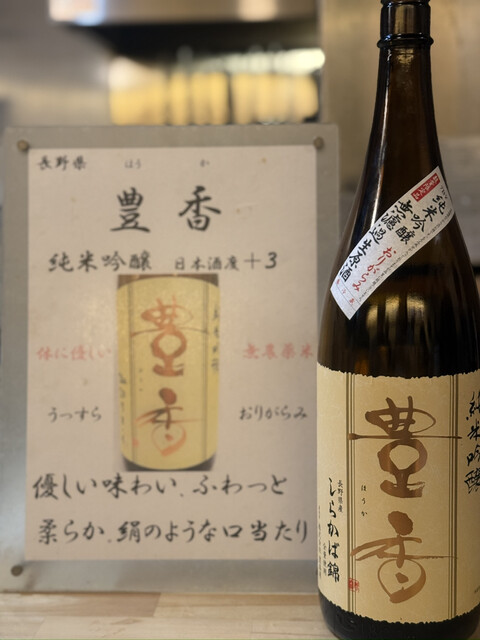 長野県
ほう か
豊香
純米吟醸 日本酒度+3
体に優しい
無農薬米
うっすら
おりがらみ
豊香
優しい味わい、ふわっと
柔らか、絹のような口当たり
純米吟醸
おりがらみ
無濾過生原酒
純米吟醸
豊香
ほうか
長野県産
しらかば錦